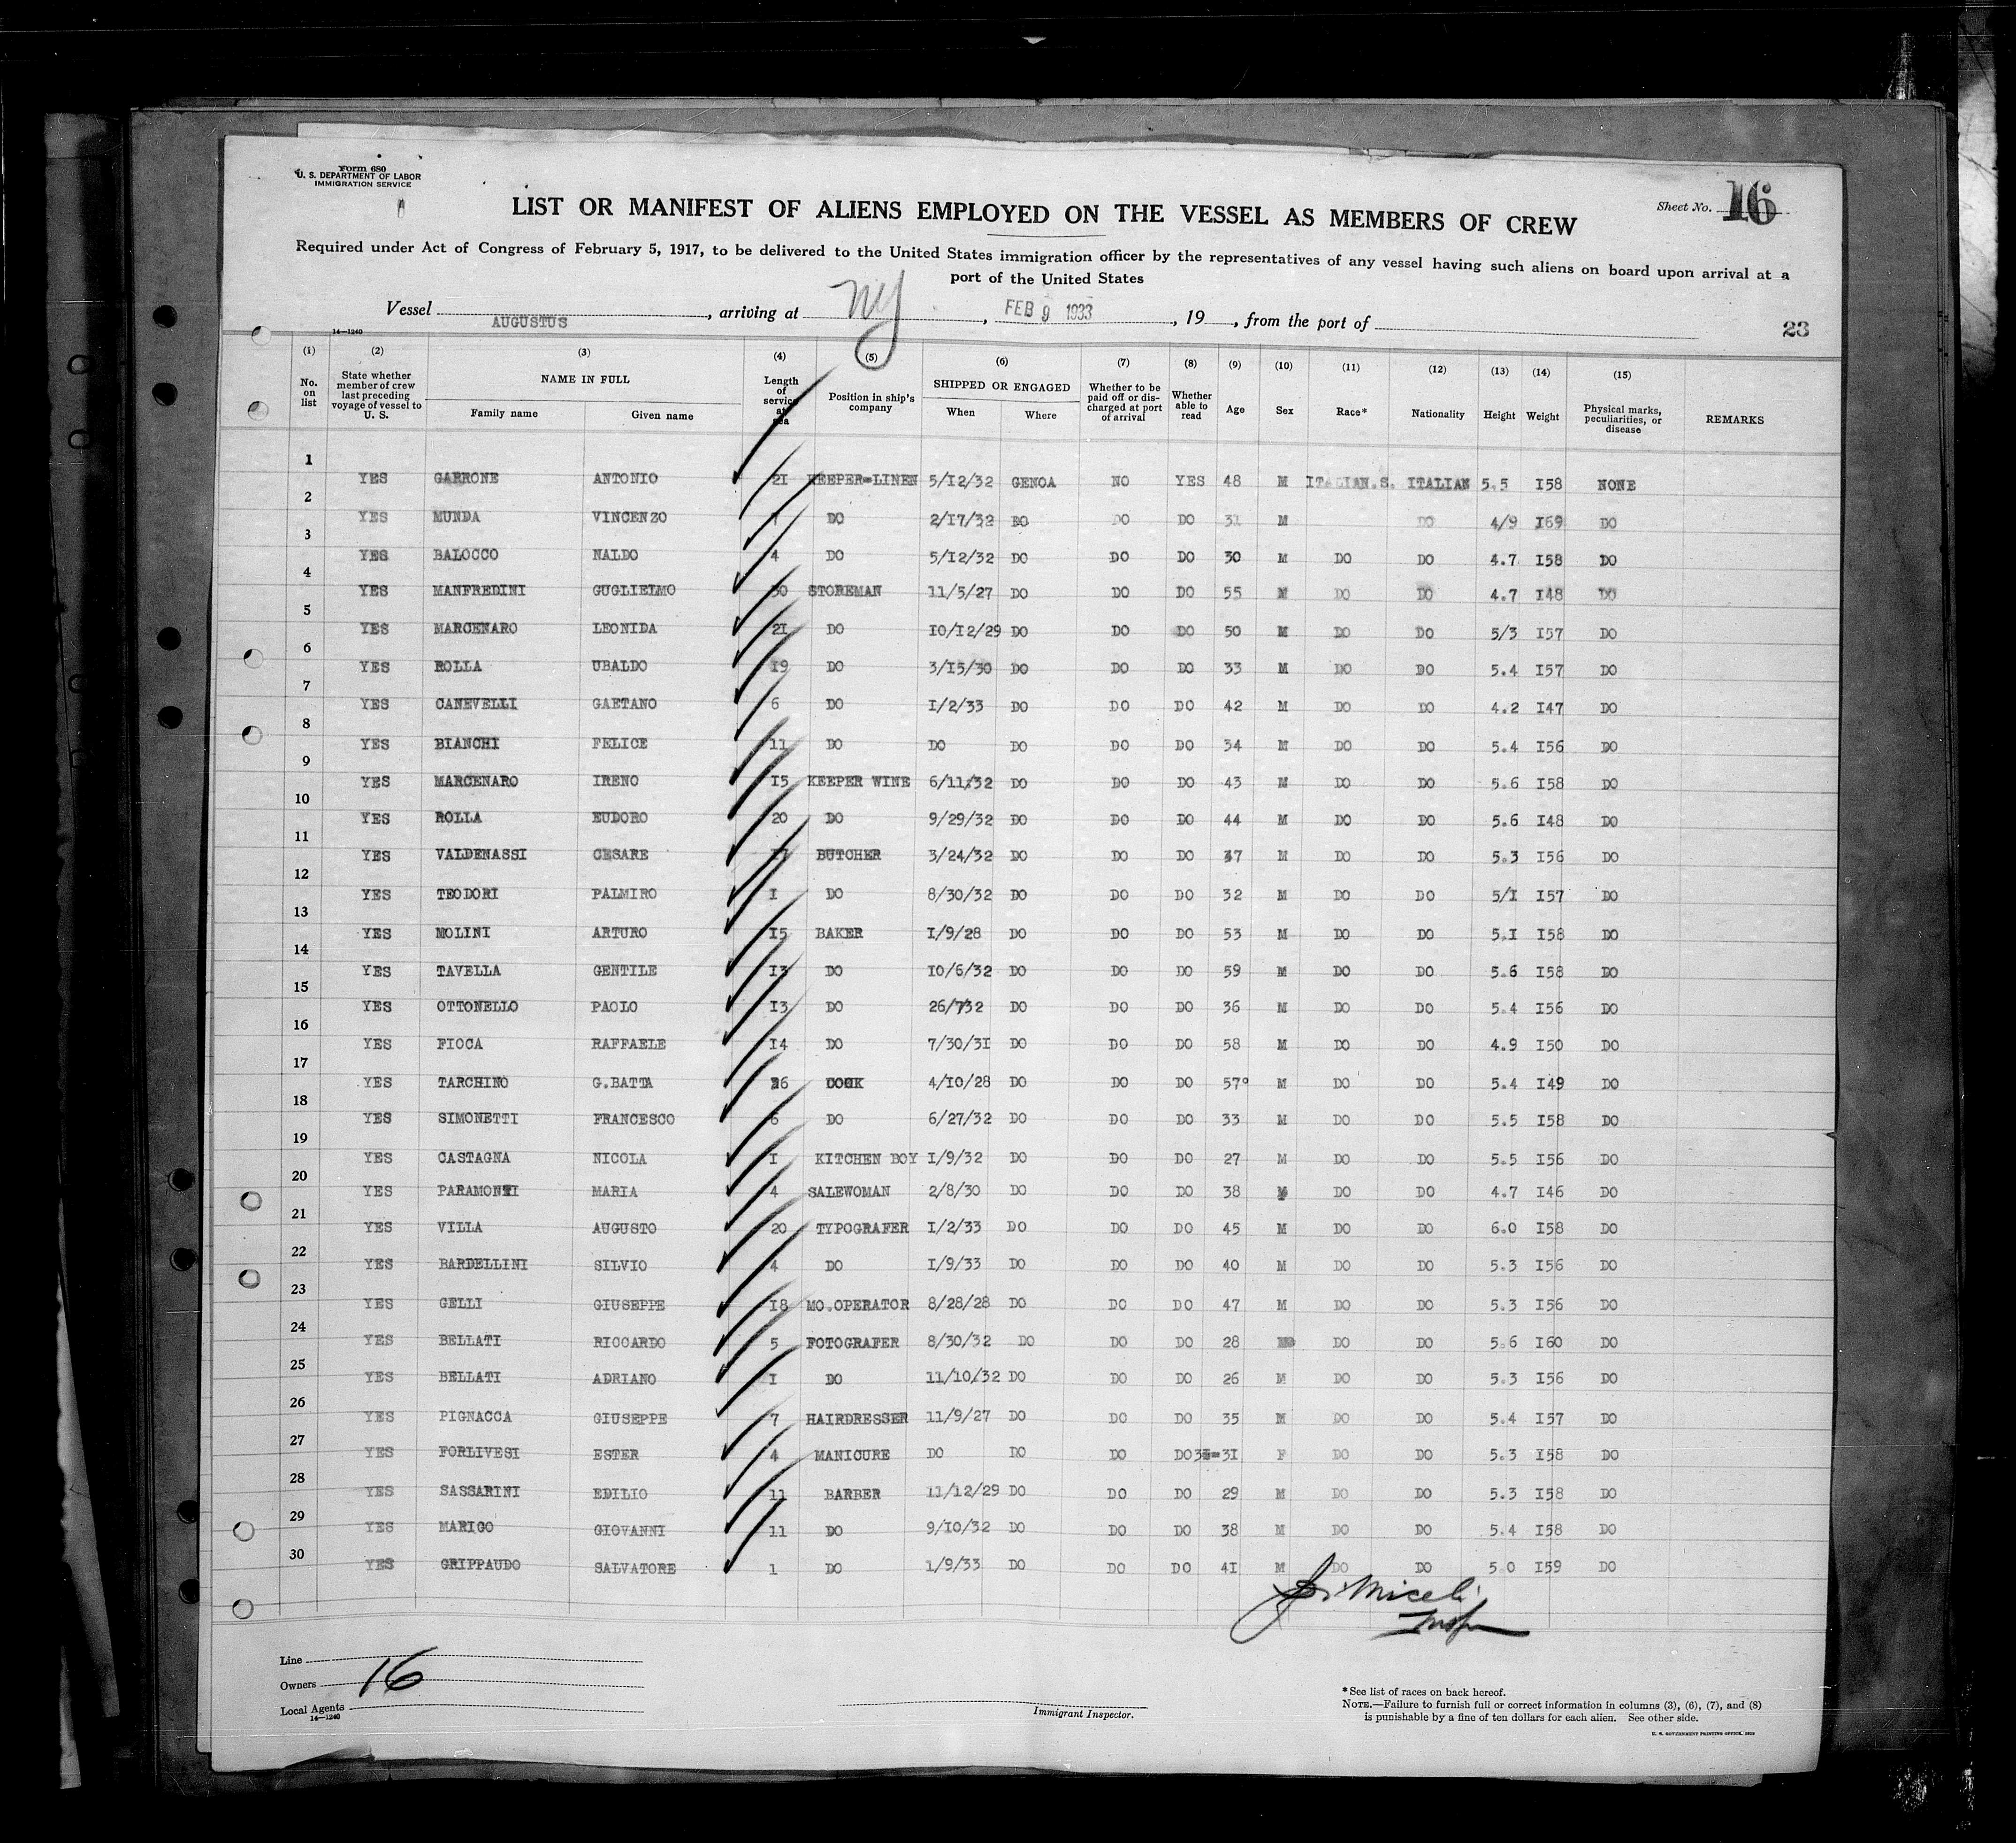 Form 680
U. S. DEPARTMENT OF LABOR
IMMIGRATION SERVICE
Sheet No. 16
LIST OR MANIFEST OF ALIENS EMPLOYED ON THE VESSEL AS MEMBERS OF CREW
Required under Act of Congress of February 5, 1917, to be delivered to the United States immigration officer by the representatives of any vessel having such aliens on board upon arrival at a
port of the United States
Vessel AUGUSTUS, arriving at NY, FEB 9 1933, 19, from the port of
14—1240
23
(1) (2) (3) (4) (5) (6) (7) (8) (9) (10) (11) (12) (13) (14) (15)
No. on list State whether member of crew last preceding voyage of vessel to U. S. NAME IN FULL Family name Given name Length of service at sea Position in ship's company SHIPPED OR ENGAGED When Where Whether to be paid off or discharged at port of arrival Whether able to read Age Sex Race* Nationality Height Weight Physical marks, peculiarities, or disease REMARKS
1 YES GARRONE ANTONIO 21 KEEPER-LINEN 5/12/32 GENOA NO YES 48 M ITALIAN.S. ITALIAN 5.5 158 NONE
2 YES MUNDA VINCENZO 7 DO 2/17/32 DO DO DO 31 M DO 4/9 169 DO
3 YES BALOCCO NALDO 4 DO 5/12/32 DO DO DO 30 M DO DO 4.7 158 DO
4 YES MANFREDINI GUGLIELMO 30 STOREMAN 11/5/27 DO DO DO 55 M DO DO 4.7 148 DO
5 YES MARCENARO LEONIDA 21 DO 10/12/29 DO DO DO 50 M DO DO 5/3 157 DO
6 YES ROLLA UBALDO 19 DO 3/15/30 DO DO DO 33 M DO DO 5.4 157 DO
7 YES CANEVELLI GAETANO 6 DO 1/2/33 DO DO DO 42 M DO DO 4.2 147 DO
8 YES BIANCHI FELICE 11 DO DO DO DO DO 34 M DO DO 5.4 156 DO
9 YES MARCENARO IRENO 15 KEEPER WINE 6/11/32 DO DO DO 43 M DO DO 5.6 158 DO
10 YES ROLLA EUDORO 20 DO 9/29/32 DO DO DO 44 M DO DO 5.6 148 DO
11 YES VALDENASSI CESARE 17 BUTCHER 3/24/32 DO DO DO 37 M DO DO 5.3 156 DO
12 YES TEODORI PALMIRO 1 DO 8/30/32 DO DO DO 32 M DO DO 5/1 157 DO
13 YES MOLINI ARTURO 15 BAKER 1/9/28 DO DO DO 53 M DO DO 5.1 158 DO
14 YES TAVELLA GENTILE 13 DO 10/6/32 DO DO DO 59 M DO DO 5.6 158 DO
15 YES OTTONELLO PAOLO 13 DO 26/732 DO DO DO 36 M DO DO 5.4 156 DO
16 YES FIOCA RAFFAELE 14 DO 7/30/31 DO DO DO 58 M DO DO 4.9 150 DO
17 YES TARCHINO G.BATTA 26 COOK 4/10/28 DO DO DO 57 M DO DO 5.4 149 DO
18 YES SIMONETTI FRANCESCO 6 DO 6/27/32 DO DO DO 33 M DO DO 5.5 158 DO
19 YES CASTAGNA NICOLA 1 KITCHEN BOY 1/9/32 DO DO DO 27 M DO DO 5.5 156 DO
20 YES PARAMONTI MARIA 4 SALEWOMAN 2/8/30 DO DO DO 38 DO DO 4.7 146 DO
21 YES VILLA AUGUSTO 20 TYPOGRAFER 1/2/33 DO DO DO 45 M DO DO 6.0 158 DO
22 YES BARDELLINI SILVIO 4 DO 1/9/33 DO DO DO 40 M DO DO 5.3 156 DO
23 YES GELLI GIUSEPPE 18 MO.OPERATOR 8/28/28 DO DO DO 47 M DO DO 5.3 156 DO
24 YES BELLATI RICCARDO 5 FOTOGRAFER 8/30/32 DO DO DO 28 DO DO 5.6 160 DO
25 YES BELLATI ADRIANO 1 DO 11/10/32 DO DO DO 26 M DO DO 5.3 156 DO
26 YES PIGNACCA GIUSEPPE 7 HAIRDRESSER 11/9/27 DO DO DO 35 M DO DO 5.4 157 DO
27 YES FORLIVESI ESTER 4 MANICURE DO DO DO DO 31 F DO DO 5.3 158 DO
28 YES SASSARINI EDILIO 11 BARBER 11/12/29 DO DO DO 29 M DO DO 5.3 158 DO
29 YES MARIGO GIOVANNI 11 DO 9/10/32 DO DO DO 38 M DO DO 5.4 158 DO
30 YES GRIPPAUDO SALVATORE 1 DO 1/9/33 DO DO DO 41 M DO DO 5 0 159 DO
Miceli
Insp
Line
Owners 16
Local Agents
14—1240
Immigrant Inspector.
*See list of races on back hereof.
NOTE.—Failure to furnish full or correct information in columns (3), (6), (7), and (8)
is punishable by a fine of ten dollars for each alien. See other side.